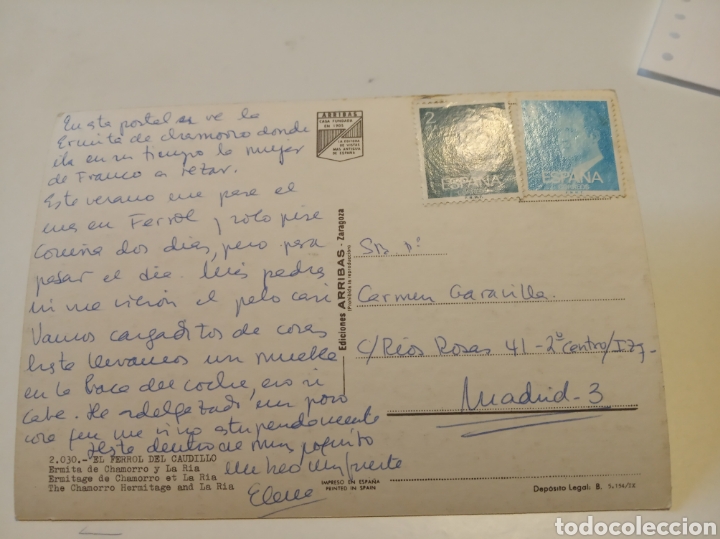 En esta postal se ve la
Ermita de Chamorro donde
iba en su tiempo la mujer
de Franco a rezar.
Este verano me pasé el
mes en Ferrol y solo pise
Coruña dos dias, pero para
pasar el dia. Mis padres
ni me vieron el pelo casi
Vamos cargaditos de cosas
hasta llevamos un mueble
en la baca del coche, eso si
cabe. He adelgazado un poco
cosa que me vino estupendamente
Hasta dentro de muy poquito
un beso muy fuerte
Elena
ARRIBAS
CASA FUNDADA
ESPAÑA
2
ESPAÑA
ESPAÑA
Ediciones ARRIBAS - Zaragoza
(Prohibida la reproducción)
Srta. Dª
Carmen Garavilla
C/ Ríos Rosas 41 - 2º Centro/Izq.
Madrid - 3
2.030.- EL FERROL DEL CAUDILLO
Ermita de Chamorro y La Ria
Ermitage de Chamorro et La Ria
The Chamorro Hermitage and La Ria
IMPRESO EN ESPAÑA
PRINTED IN SPAIN
Depósito Legal: B.
todocoleccion